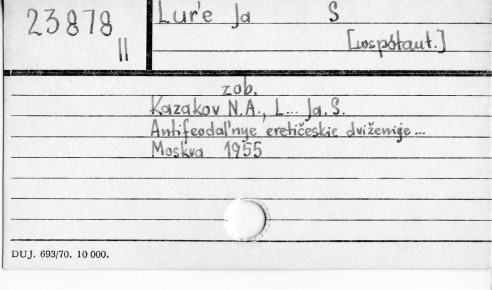 23878
II
Lur'e Ja S
[współaut.]
zob.
Kazakov N.A., L... Ja. S.
Antifeodal'nye eretičeskie dviženije...
Moskva 1955
DUJ. 693/70. 10 000.